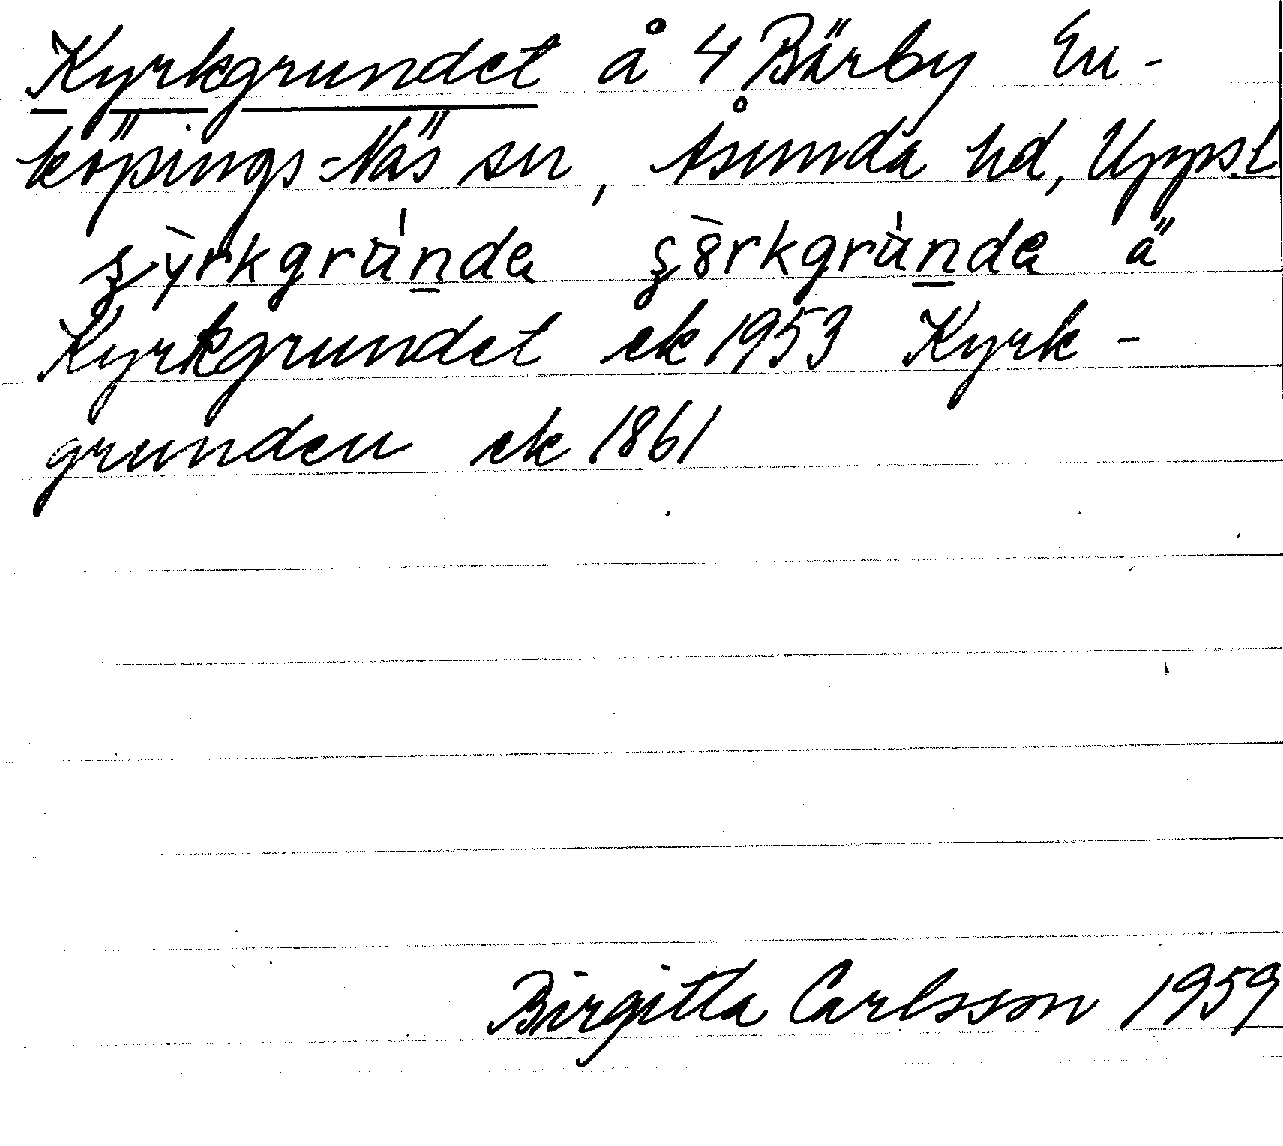 Kyrkgrundet å 4 Bärby En-
köpings-Näs sn, Åsunda hd, Uppsl
Kyrkgrundet ek 1953 Kyrk-
grunden ek 1861
Birgitta Carlsson 1959